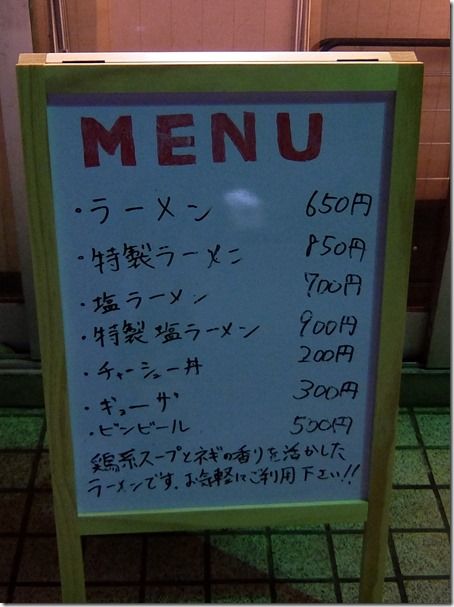 MENU
・ラーメン 650円
・特製ラーメン 850円
・塩ラーメン 700円
・特製塩ラーメン 900円
・チャーシュー丼 200円
・ギョーザ 300円
・ビンビール 500円
鶏系スープとネギの香りを活かした
ラーメンです。お気軽にご利用下さい!!